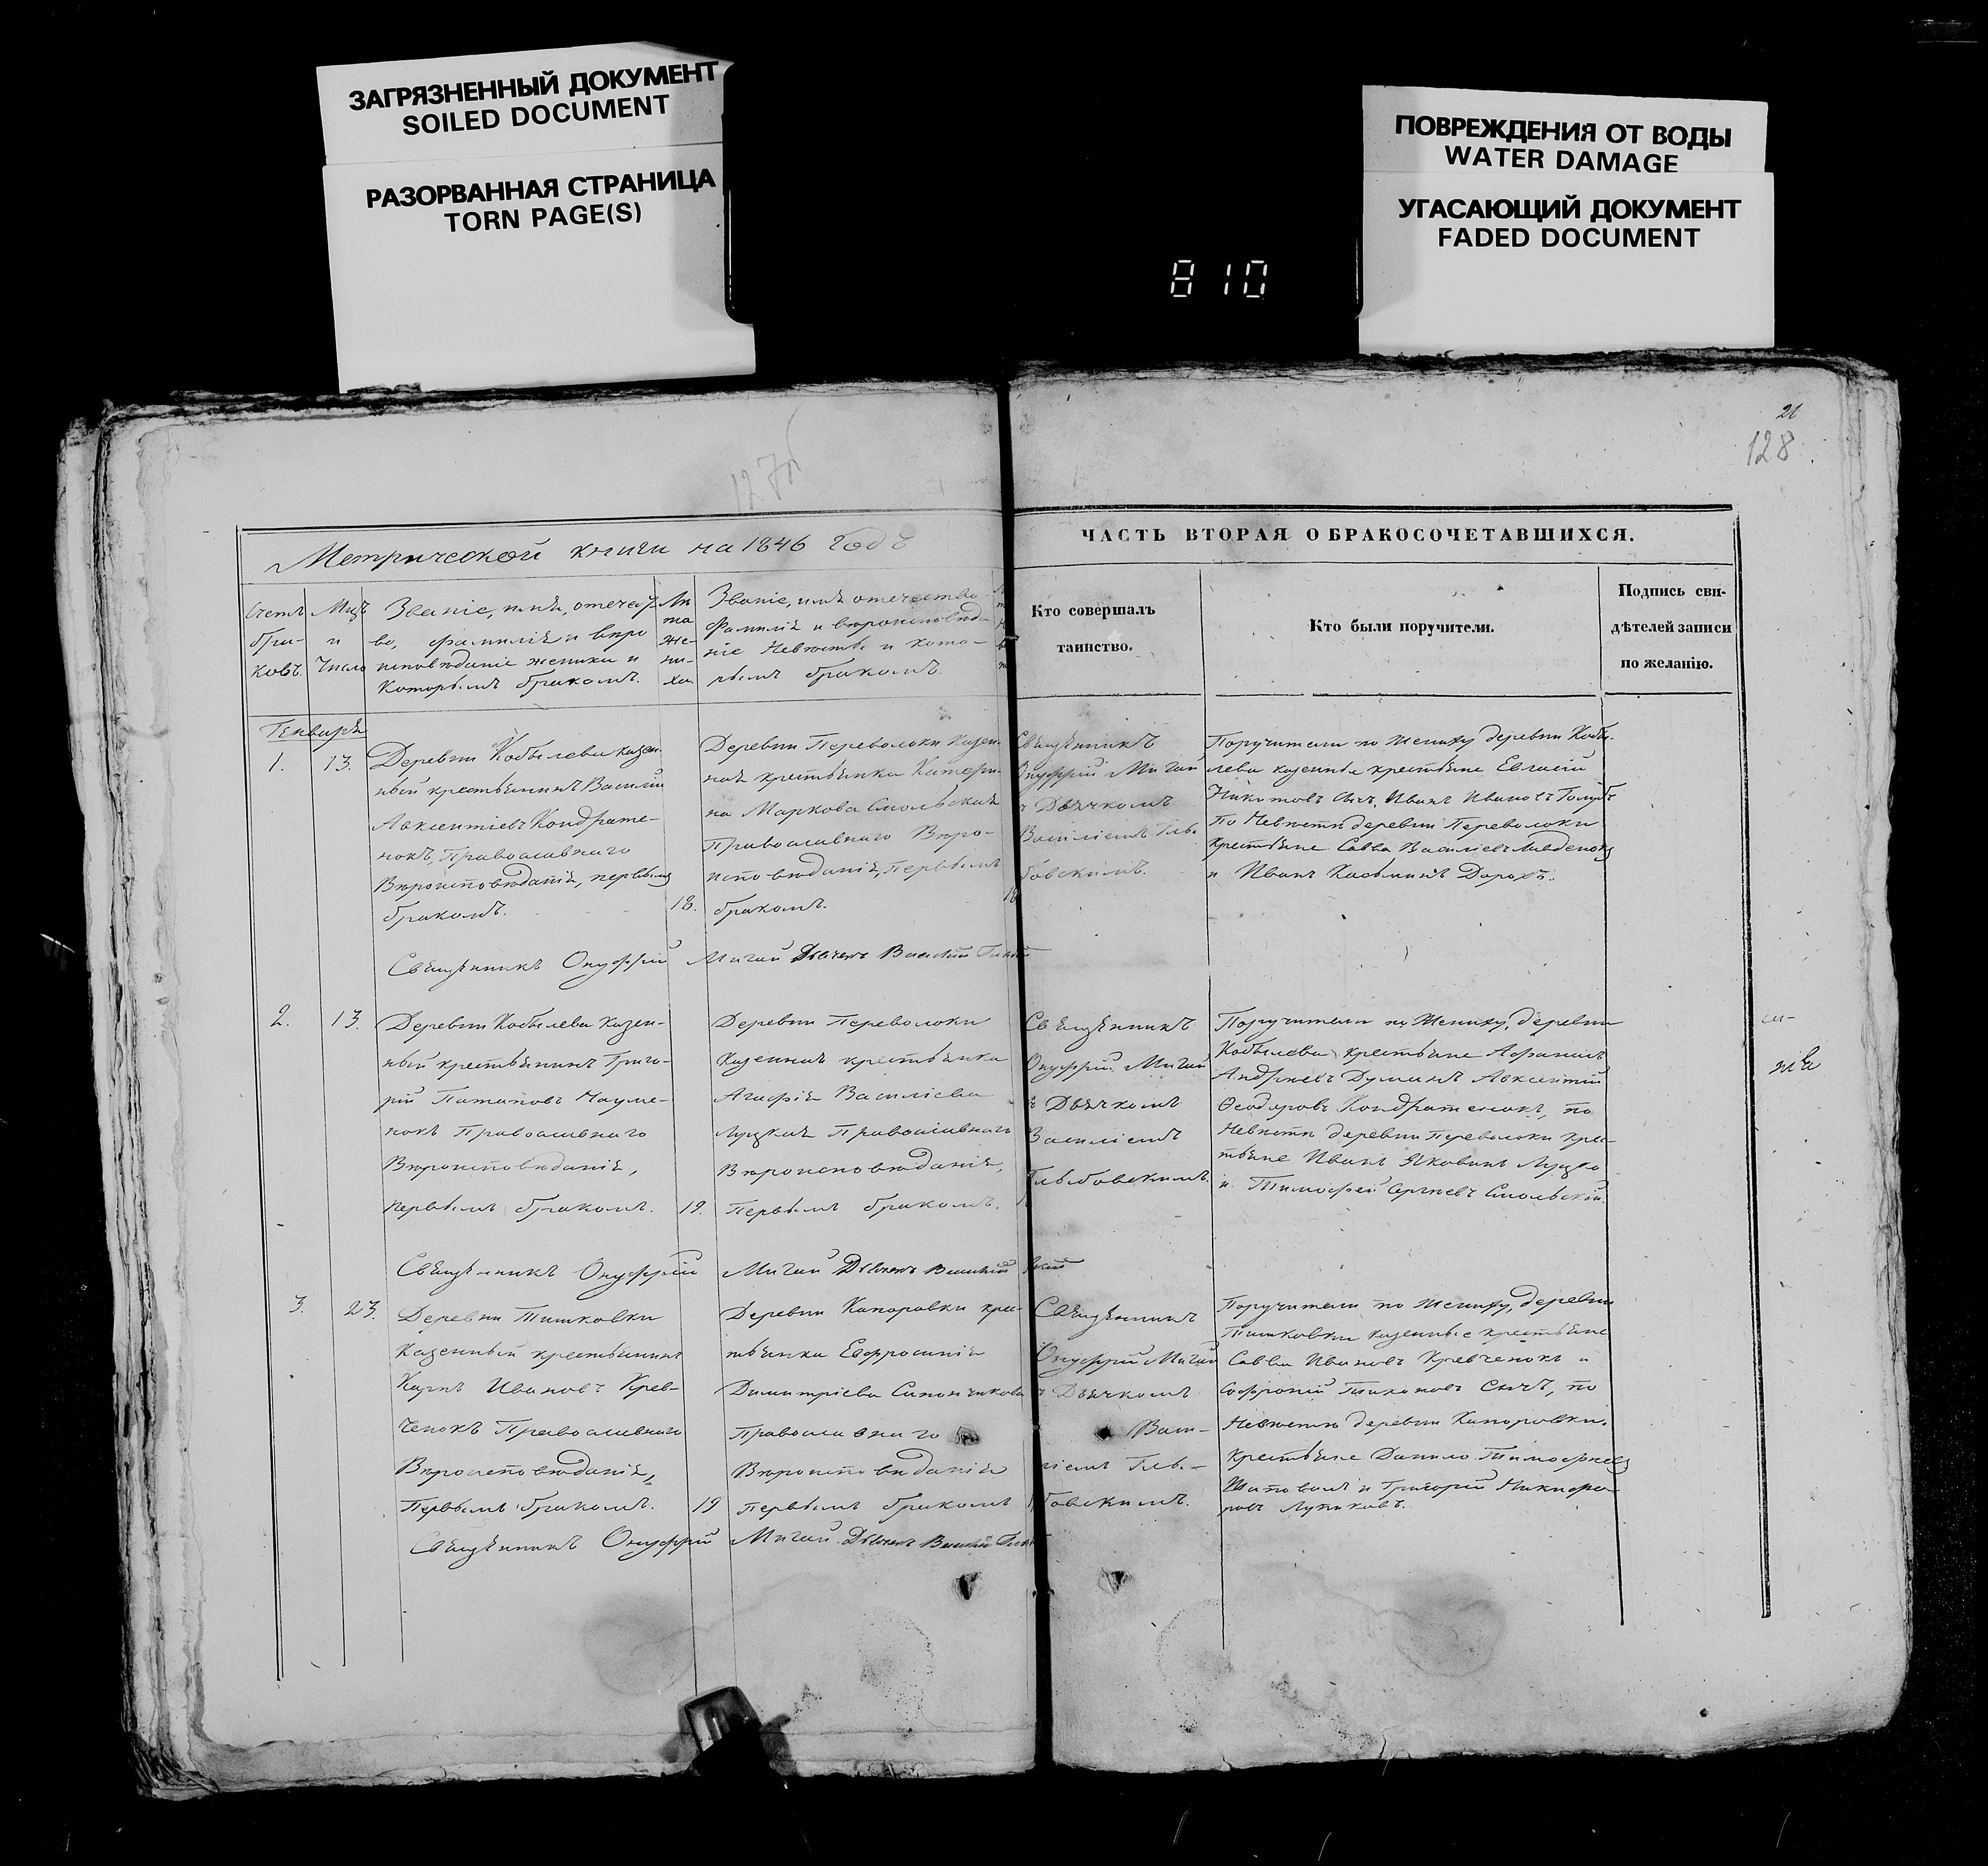 ЗАГРЯЗНЕННЫЙ ДОКУМЕНТ
SOILED DOCUMENT
РАЗОРВАННАЯ СТРАНИЦА
TORN PAGE(S)
ПОВРЕЖДЕНИЯ ОТ ВОДЫ
WATER DAMAGE
УГАСАЮЩИЙ ДОКУМЕНТ
FADED DOCUMENT
810
21
128
Метрической книги на 1846 Годъ
Счетъ
бра-
ковъ.
Мцъ
и
Число
Званіе, имя, отечест-
во, фамилія и веро
исповѣданіе жениха и
Которымъ бракомъ.
Лѣ
та
же-
ни-
ха.
Званіе, имя отечество
Фамилія и вѣроисповѣда-
ніе Невѣсты и кото-
рымъ бракомъ.
ЧАСТЬ ВТОРАЯ О БРАКОСОЧЕТАВШИХСЯ.
Кто совершалъ
таинство.
Кто были поручители.
Подпись сви-
дѣтелей записи
по желанію.
Генваря
1.
13.
Деревни Кобылева казен-
ный крестьянинъ Василій
Авксентіевъ Кондрате-
нокъ, Православнаго
Вѣроисповѣданія, первымъ
бракомъ.
18.
Деревни Переволоки Казен-
ная крестьянка Катери-
на Маркова Смольская
Православнаго Вѣро-
исповѣданія, Первымъ
бракомъ.
18
Священникъ
Онуфрій Мигай
съ Дьячкомъ
Василіемъ Глы-
бовскимъ.
Поручители по Жениху деревни Кобы-
лева казенные крестьяне Евласій
Никитовъ Сычъ, Иванъ Ивановъ Голубъ
По Невѣстѣ деревни Переволоки
Крестьяне Савва Василіевъ
и Иванъ Касьминъ
Священникъ Онуфрій Мигай Дьячекъ Василій
2.
13.
Деревни Кобылева казен-
ный крестьянинъ Григо-
рій Патаповъ Науме-
нокъ Православнаго
Вѣроисповѣданія,
первымъ бракомъ.
19.
Деревни Переволоки
Казенная крестьянка
Агафія Василіева
Луцкая Православнаго
Вѣроисповѣданія,
Первымъ бракомъ.
Священникъ
Онуфрій Мигай
съ Дьячкомъ
Василіемъ
Глыбовскимъ.
Поручители по Жениху, деревни
Кобылева крестьяне Афанасій
Андреевъ Авксентій
Феодоровъ Кондратенокъ, по
Невѣстѣ деревни Переволоки крес-
тьяне Иванъ Яковинъ Луцко
и Тимофей Сергѣевъ Смольскій.
Священникъ Онуфрій Мигай Дьячекъ Василій
3.
23.
Деревни Тишковки
Казенный крестьянинъ
Карпъ Ивановъ Крев-
ченокъ Православнаго
Вѣроисповѣданія,
Первымъ бракомъ.
19
Деревни Капоровки крес-
тьянка Евфросинія
Димитріева Сапончикова
Православнаго
Вѣроисповѣданія
первымъ бракомъ
Священникъ
Онуфрій Мигай
съ Дьячкомъ
Васи-
ліемъ Глы-
бовскимъ.
Поручители по Жениху, деревни
Тишковки казенные крестьяне
Савва Ивановъ Кревченокъ и
Софроній Тихоновъ Сычъ, по
Невѣстѣ деревни Капоровки.
Крестьяне Данило Тимофеевъ
Шаповалъ и Григорій Никифо-
ровъ Лупиковъ.
Священникъ Онуфрій Мигай Дьячекъ Василій